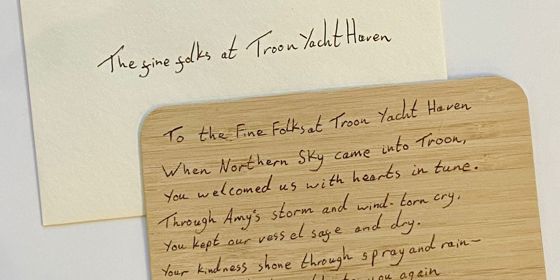 The fine folks at Troon Yacht Haven
To the Fine Folks at Troon Yacht Haven
When Northern Sky came into Troon,
you welcomed us with hearts in tune.
Through Amy's storm and wind-torn cry,
you kept our vessel safe and dry.
Your kindness shone through spray and rain—
you again